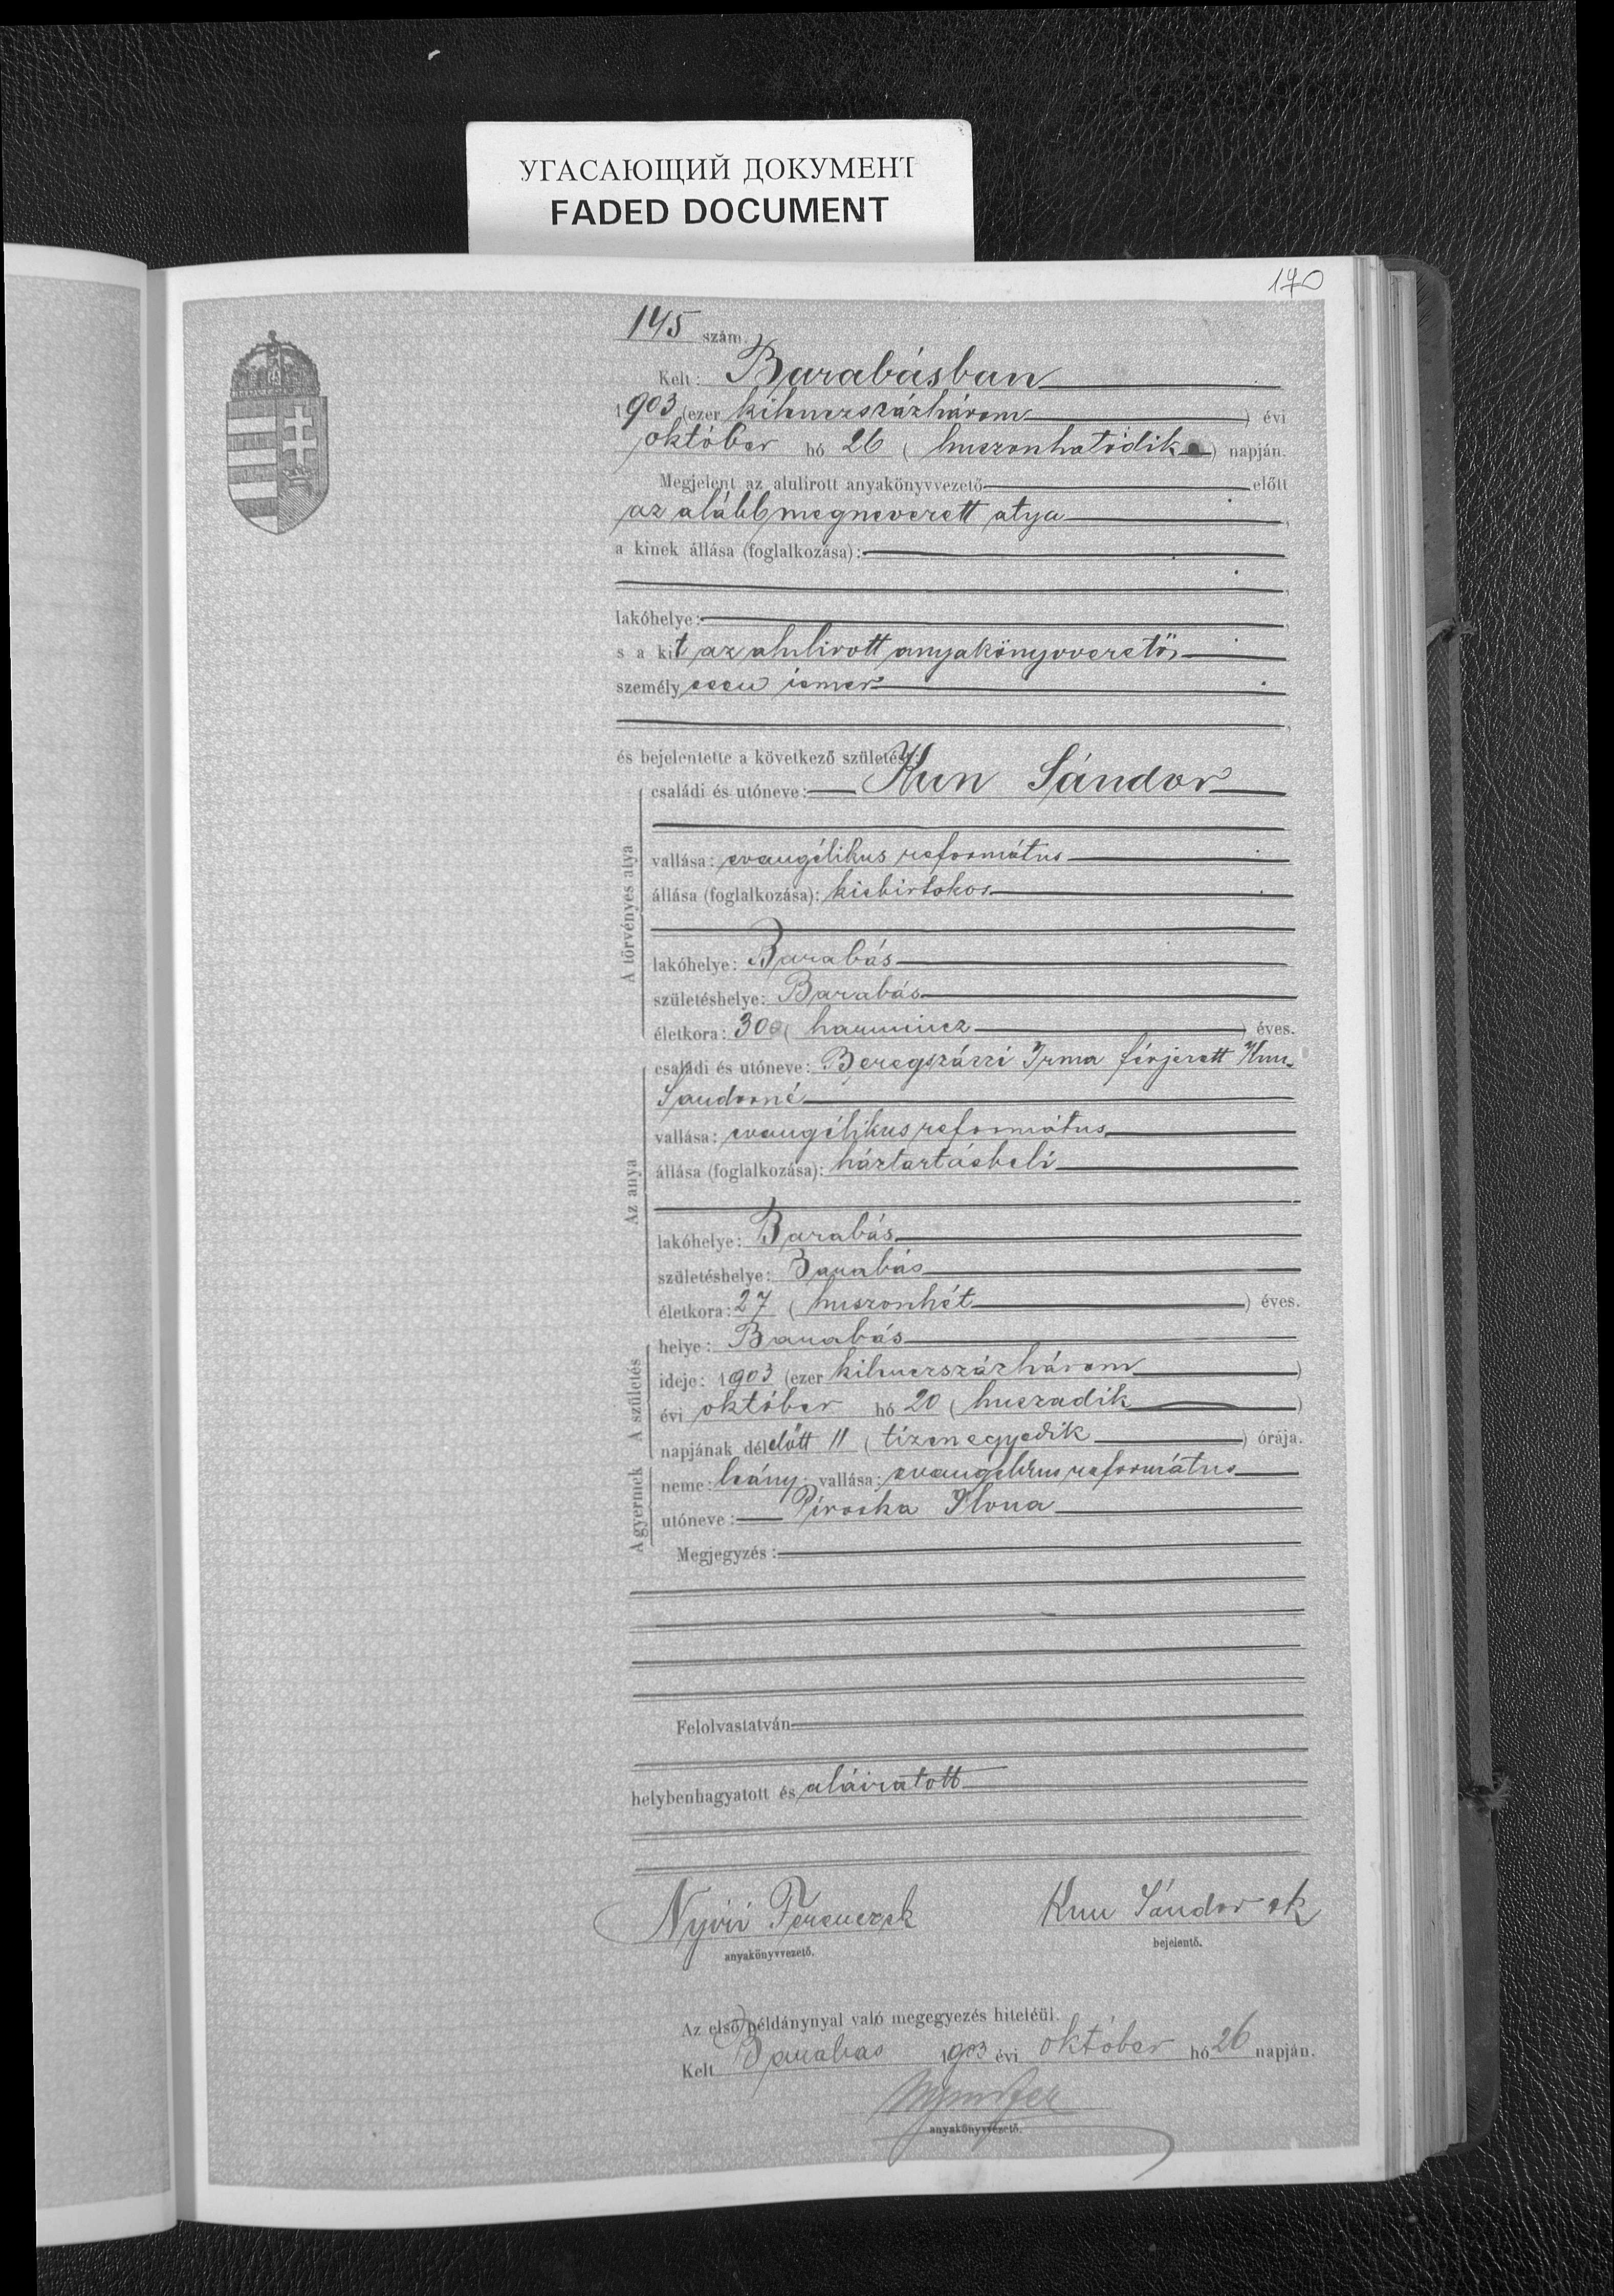 УГАСАЮЩИЙ ДОКУМЕНТ
FADED DOCUMENT
170
145 szám.
Kelt: Barabásban
1903 (ezer kilenczszázhárom) évi
október hó 26 (huszonhatodik) napján.
Megjelent az alulirott anyakönyvvezető előtt
az alább megnevezett atya
a kinek állása (foglalkozása):
lakóhelye:
s a kit az alulirott anyakönyvvezető
személyesen ismer
és bejelentette a következő születést:
A törvényes atya
családi és utóneve: Kun Sándor
vallása: evangélikus református
állása (foglalkozása): kisbirtokos
lakóhelye: Barabás
születéshelye: Barabás
életkora: 30 (harmincz) éves.
Az anya
családi és utóneve: Beregszászi Irma férjezett Kun
Sandorné
vallása: evangélikus református
állása (foglalkozása): háztartásbeli
lakóhelye: Barabás
születéshelye: Barabás
életkora: 27 (huszonhét) éves.
A születés
helye: Barabás
ideje: 1903 (ezer kilenczszázhárom)
évi október hó 20 (huszadik)
napjának délelőtt 11 (tizenegyedik) órája.
A gyermek
neme: leány; vallása: evangélikus református
utóneve: Piroska Ilona
Megjegyzés:
Felolvastatván
helybenhagyatott és aláiratott
Nyíri Ferencz sk Kun Sándor sk
anyakönyvvezető. bejelentő.
Az első példánynyal való megegyezés hiteléül.
Kelt Barabas 1903 évi október hó 26 napján.
anyakönyvvezető.